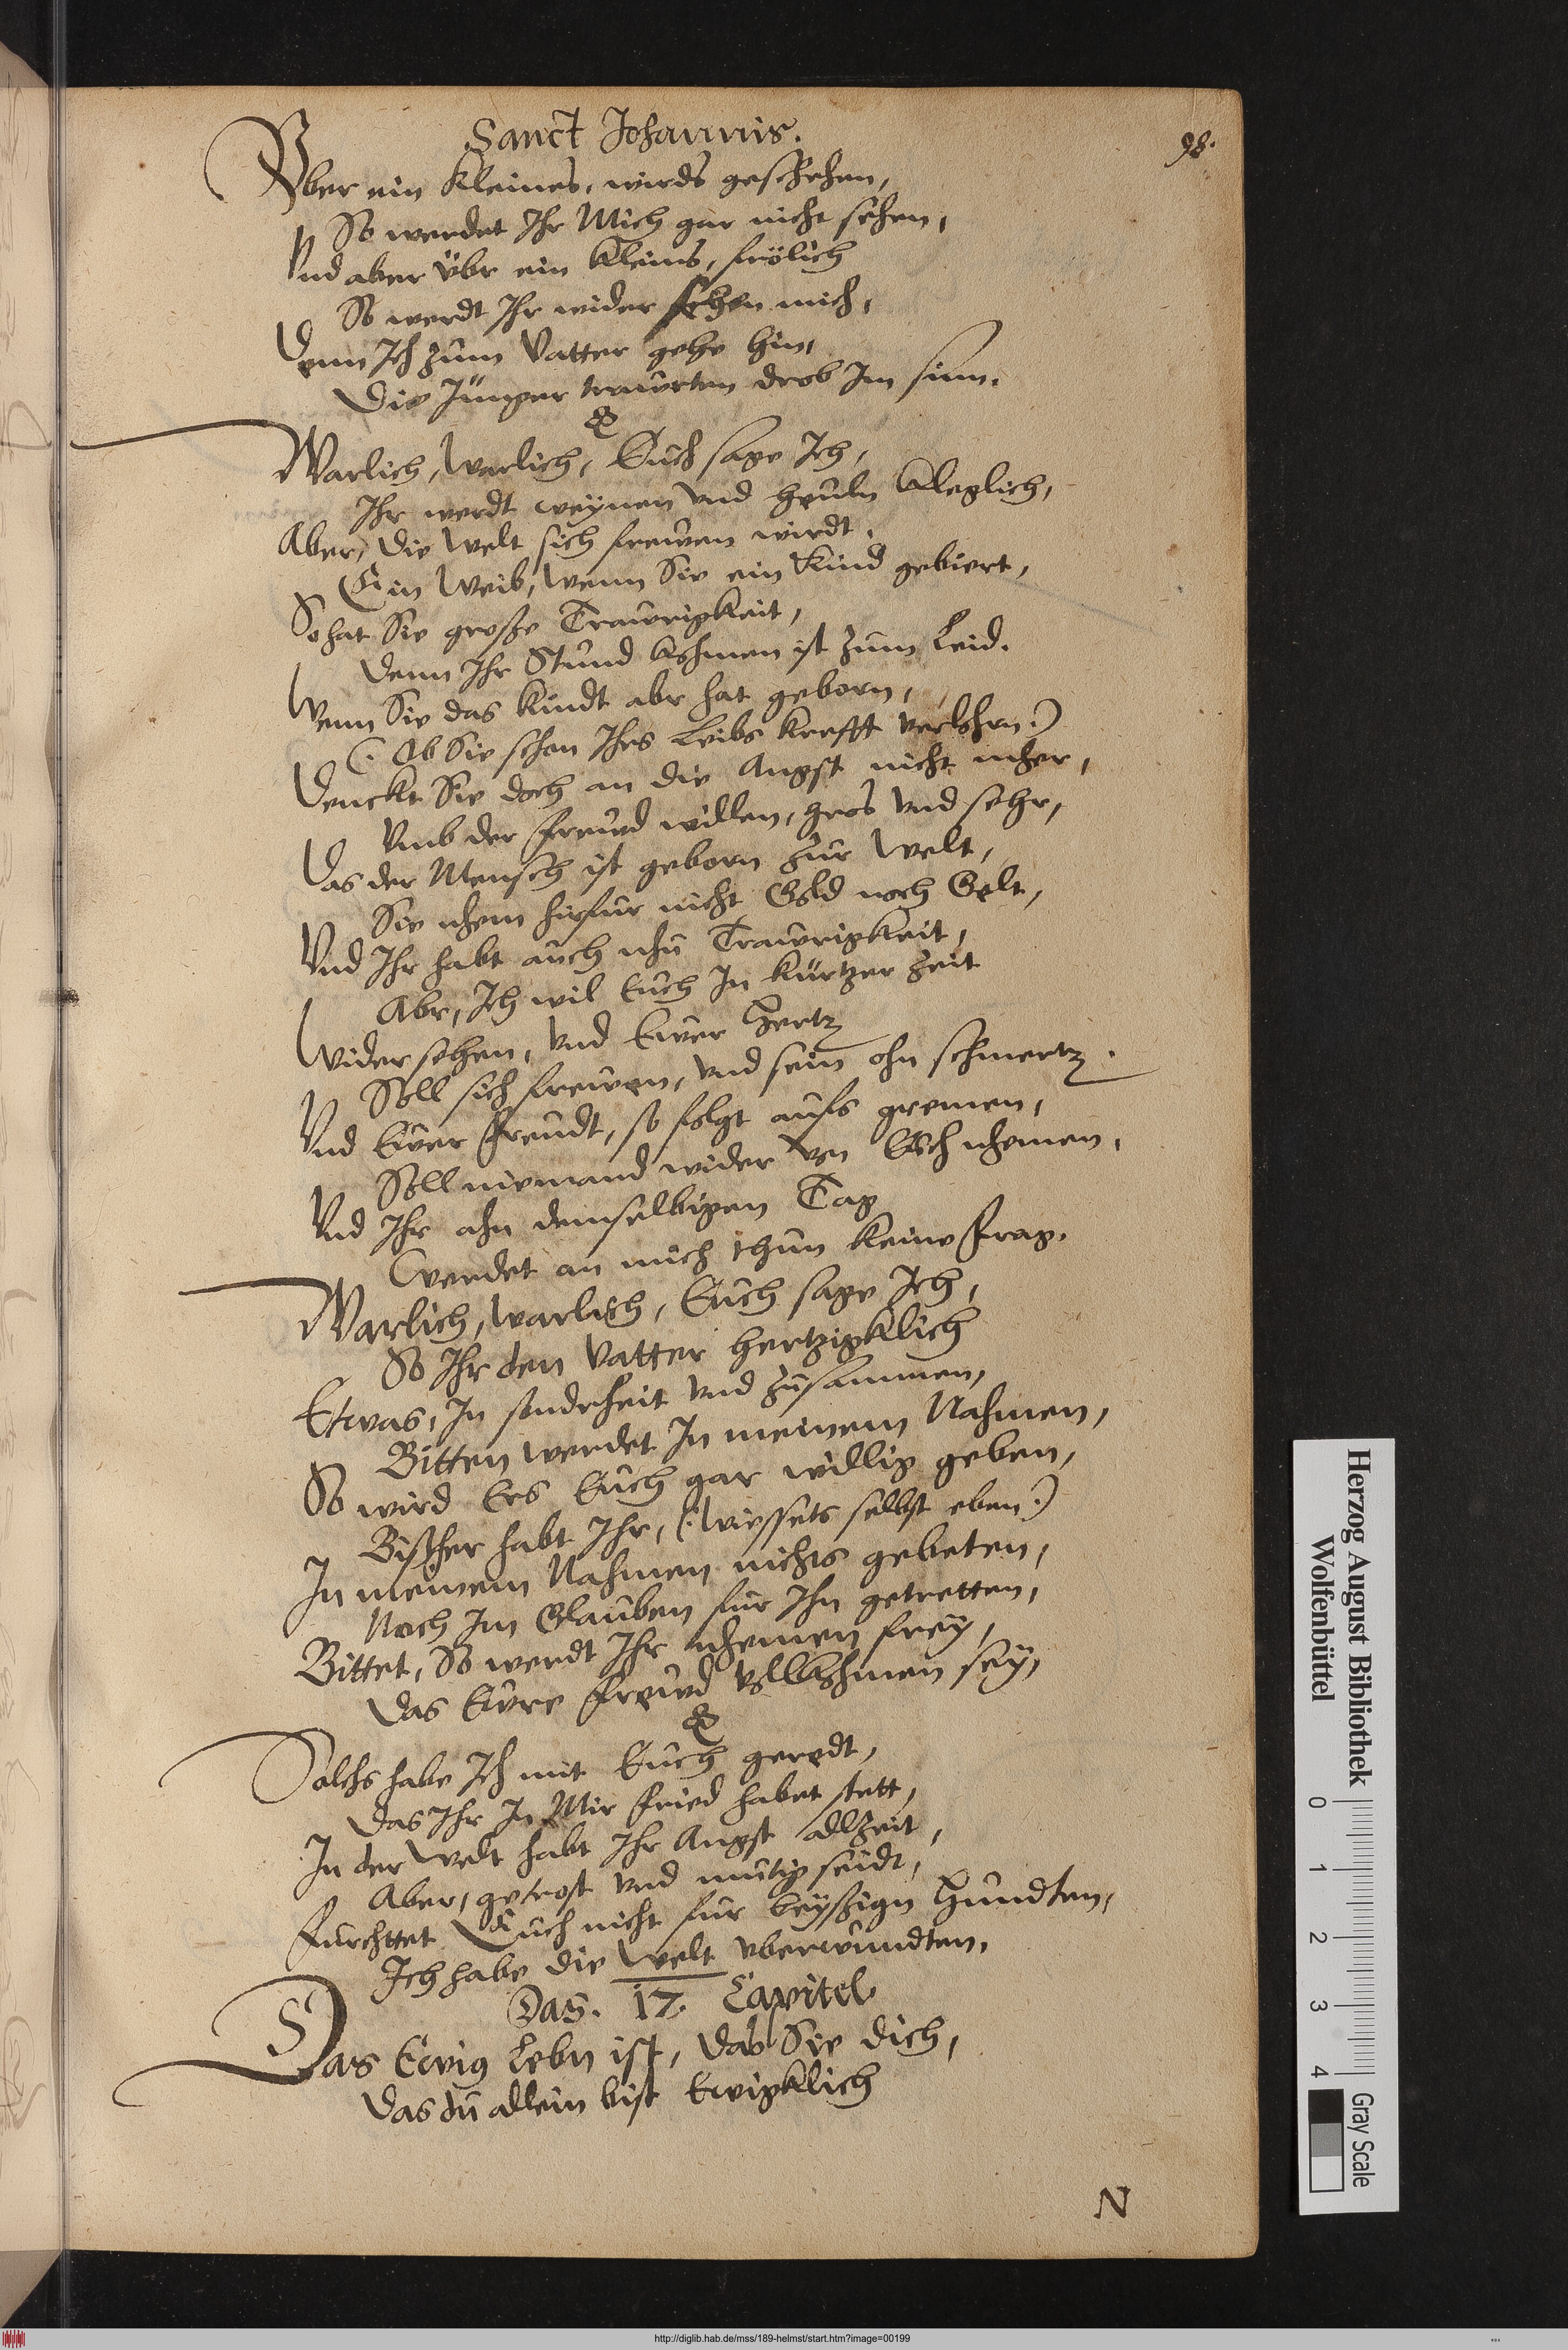 Sanct Johannis.
98.
Vber ein Kleines, wirds geschehen,
So werdet Ihr Mich gar nicht sehen,
Vnd aber übr ein Kleins, frölich
So werdt Ihr wider sehen mich,
Denn Ich zum Vatter gehe hin,
Die Jünger traurten drob Im sinn.
Warlich, Warlich, Euch sage Ich,
Ihr werdt weynen vnd heuln kleglich,
Aber, die Welt sich frewen wirdt,
Ein Weib, Wenn Sie ein Kind gebiert,
So hat Sie große Traurigkeit,
Denn Ihr Stund kohmen ist zum Leid.
Wenn Sie das Kindt abr hat geborn,
(: Ob Sie schon Ihrs Leibs krefft verlohrn :)
Denckt Sie doch an die Angst nicht mher,
Vmb der freud willen, gros vnd sehr,
Das der Mensch ist geborn zur Welt,
Sie nhem hirfur nicht Gold noch Gelt,
Vnd Ihr habt auch nhu Traurigkeit,
Abr, Ich wil Euch In kurtzer Zeit
Wider sehen, vnd Ewer Hertz
Soll sich frewen, vnd sein ohn schmertz.
Vnd Ewer freudt, so folgt aufs gremen,
Soll niemand wider von Euch nhemen.
Vnd Ihr ahn demselbigen Tag
Werdet an mich thun keine frag.
Warlich, warlich, Euch sage Ich,
So Ihr den Vatter hertzigklich
Etwas, In sondrheit vnd zusammen,
Bitten werdet In meinem Nahmen,
So wird Ers Euch gar willig geben,
Bißher habt Ihr, (: wiessets selbst eben :)
In meinem Nahmen nichts gebeten,
Noch Im Glauben fur Ihn getretten,
Bittet, So werdt Ihr nhemen frey,
Das Ewre freud vollkohmen sey,
Solchs habe Ich mit Euch geredt,
Das Ihr In Mir fried habet stett,
In der Welt habt Ihr Angst allzeit,
Aber, getrost vnd mutig seidt,
Furchttet Euch nicht fur beyßign Hundten,
Ich habe die Welt vberwundten.
Das. 17. Capitel
Das Ewig Lebn ist, das Sie dich,
Das du allein bist Ewigklich
N
Herzog August Bibliothek
Wolfenbüttel
0 1 2 3 4
Gray Scale
http://diglib.hab.de/mss/189-helmst/start.htm?image=00199